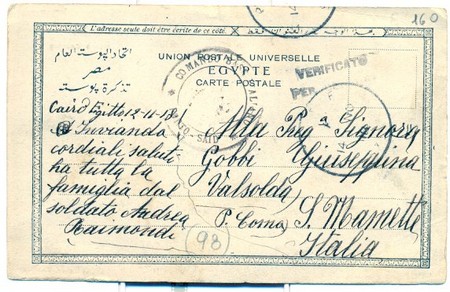 160
L'adresse seule doit être écrite de ce côté.
اتحاد البوستة العام
مصر
تذكرة بوستة
UNION POSTALE UNIVERSELLE
EGYPTE
CARTE POSTALE
VERIFICATO
PER
Cairo Egitto 12-11-18
Inviando
cordiali saluti
ha tutta la
famiglia dal
soldato Andrea
Raimondi
Alla Preg.a Signora
Gobbi Giuseppina
Valsolda
P. Como S. Mamette
Italia
98